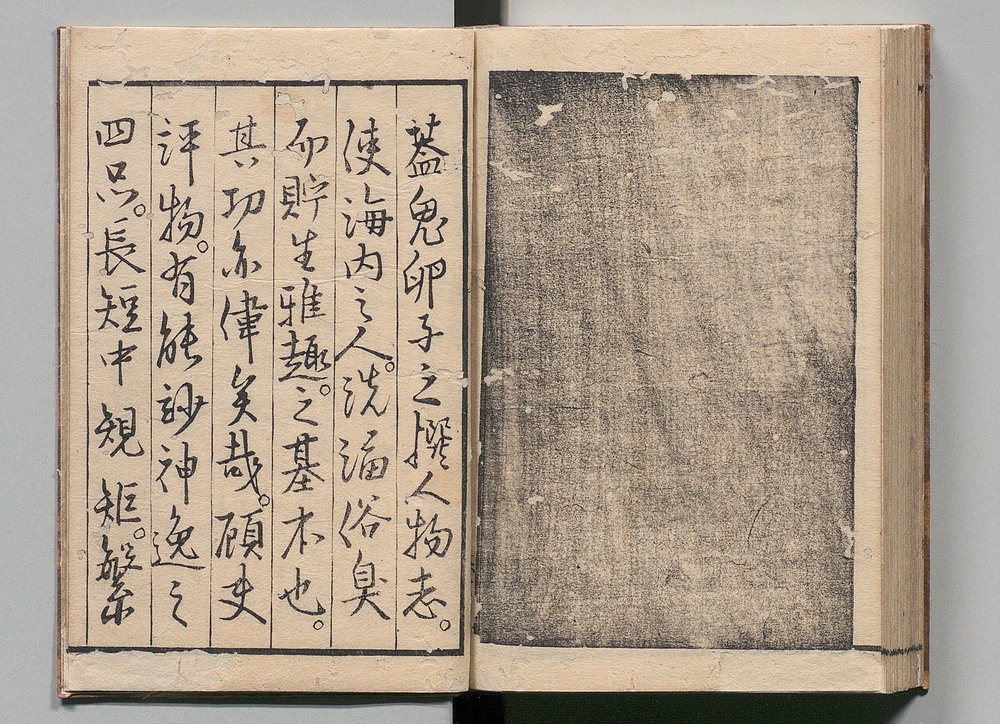 蓋鬼卵子之撰人物志。
使海内之人。洗滔俗臭
而貯生雅趣。之基本也。
其功亦偉矣哉。顧夫
評物。有能妙神逸之
四品。長短中規矩。繁